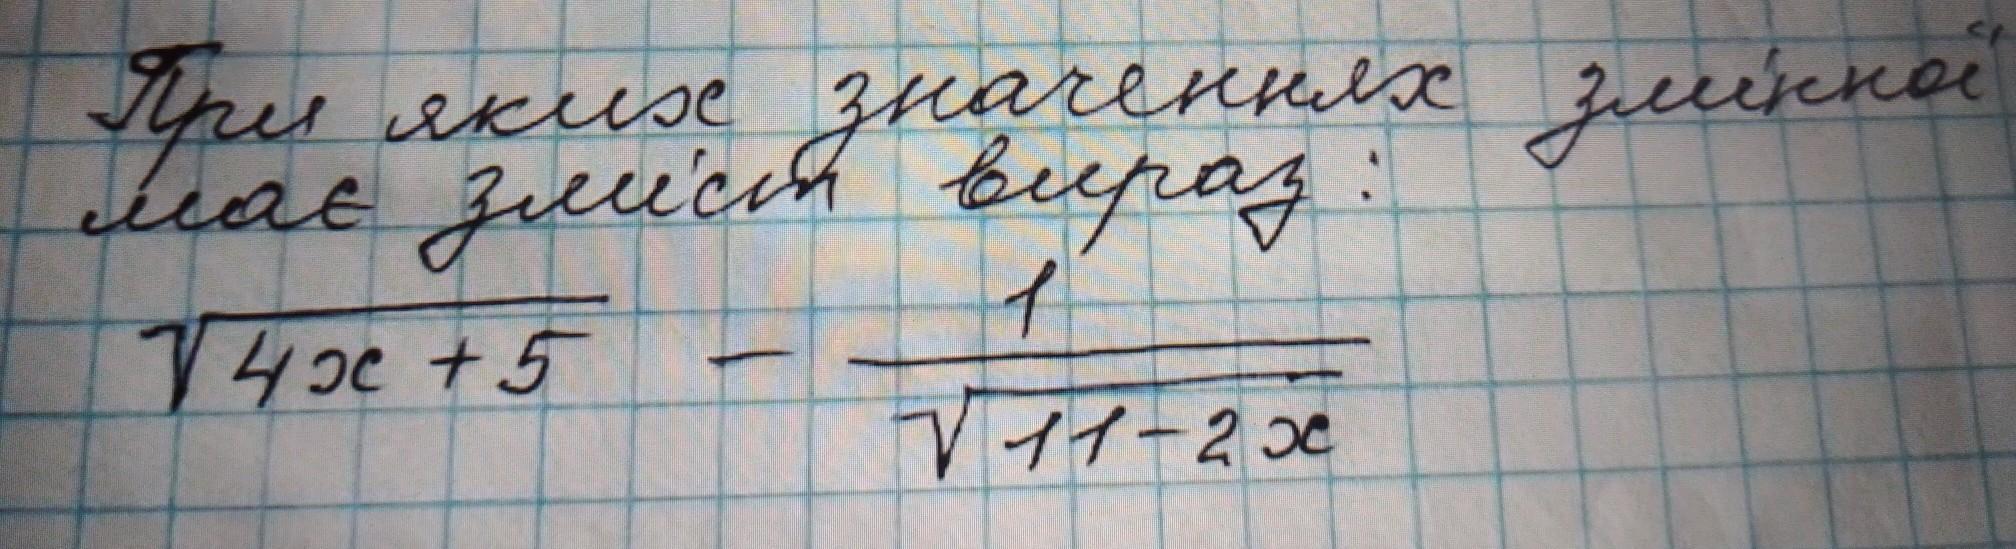 При яких значеннях змінної
має зміст вираз:
√(4x + 5) - 1/√(11-2x)